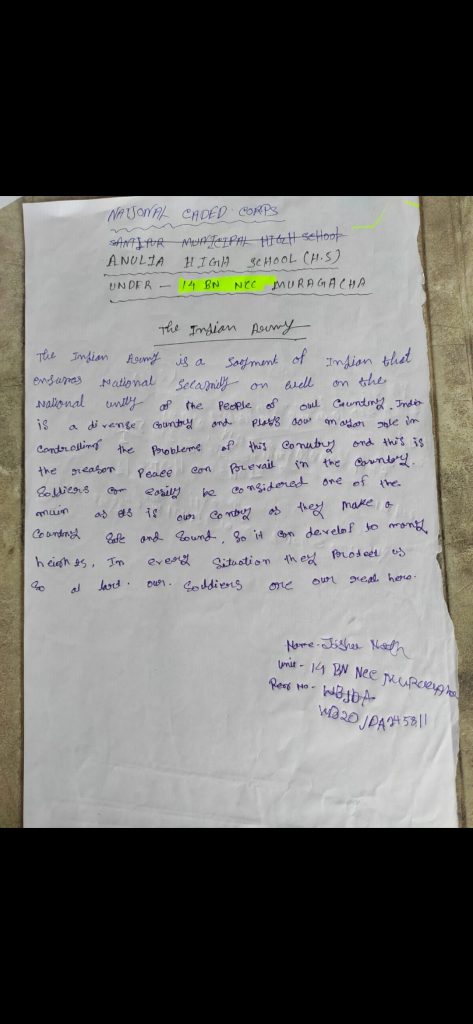 NATIONAL CADED CORPS
SANTIPUR MUNICIPAL HIGH School
ANULIA HIGH SCHOOL (H.S)
UNDER - 14 BN NCC MURAGACHA
The Indian Army
The Indian Army is a Sagment of Indian that
ensuras National Security on well on the
National unity of the People of out Country. India
is a divense Country and Plays major role in
Controlling the Problems of this Conutry and this is
the reason Peace can Prevail in the Country.
Soldiers can easily be considered one of the
as is our Contry as they make a
Country Safe and Sound. So it can develop to many
heights. In every Situation they Protect us
So at last. our. Soldiers are our real hero.
Name -
Unit - 14 BN NCC MURAGACHA
No -
WB20/DA245811